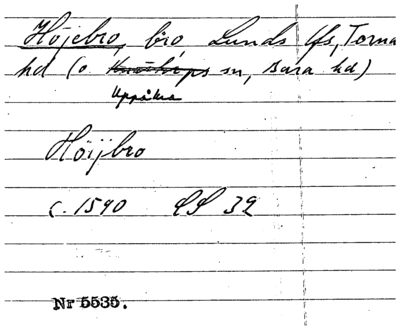 Höjebro, bro, Lunds lfs, Torna
hd (o. Knästorps sn, Bara hd)
Uppåkra
Höijbro
c. 1590 LS 32
Nr 5535.